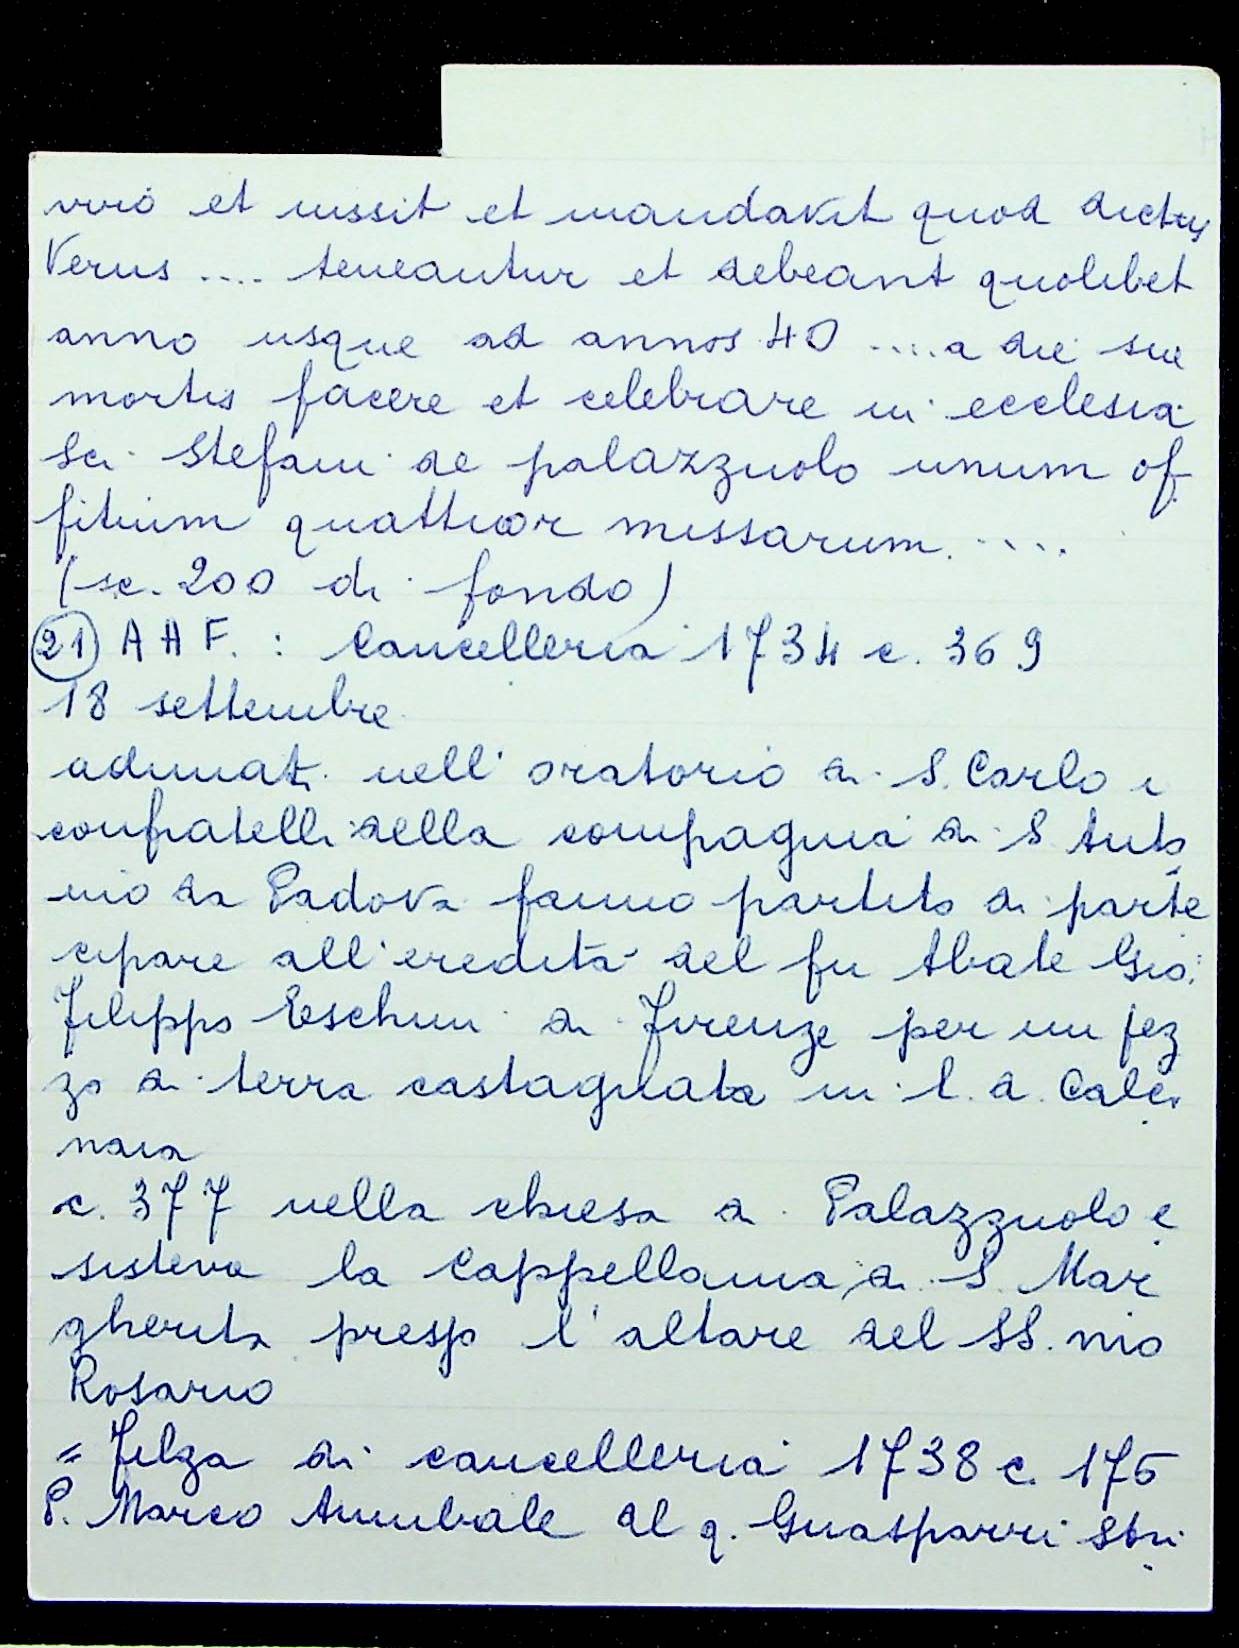 vivió et iussit et mandavit quod dictus
Verus .... teneantur et debeant quolibet
anno usque ad annos 40 .... a die sue
mortis facere et celebrare in ecclesia
Sci Stefani de palazzuolo unum of
fitium quattuor missarum. ....
(sc. 200 di fondo)
(21) A A F. : Cancelleria 1734 c. 369
18 settembre
adunati nell' oratorio di S. Carlo i
confratelli della compagnia di S Anto
nio da Padova fanno partito di parte
cipare all'eredità del fu Abate Gio:
Filippo Eschini di Firenze per un pez
zo di terra castagnata in l. d. Calci
naia
c. 377 nella chiesa di Palazzuolo e
sisteva la Cappellania di S. Mar
gherita presso l'altare del SS. mo
Rosario
= Filza di cancelleria 1738 c. 175
P. Marco Annibale del q. Guasparri Stri